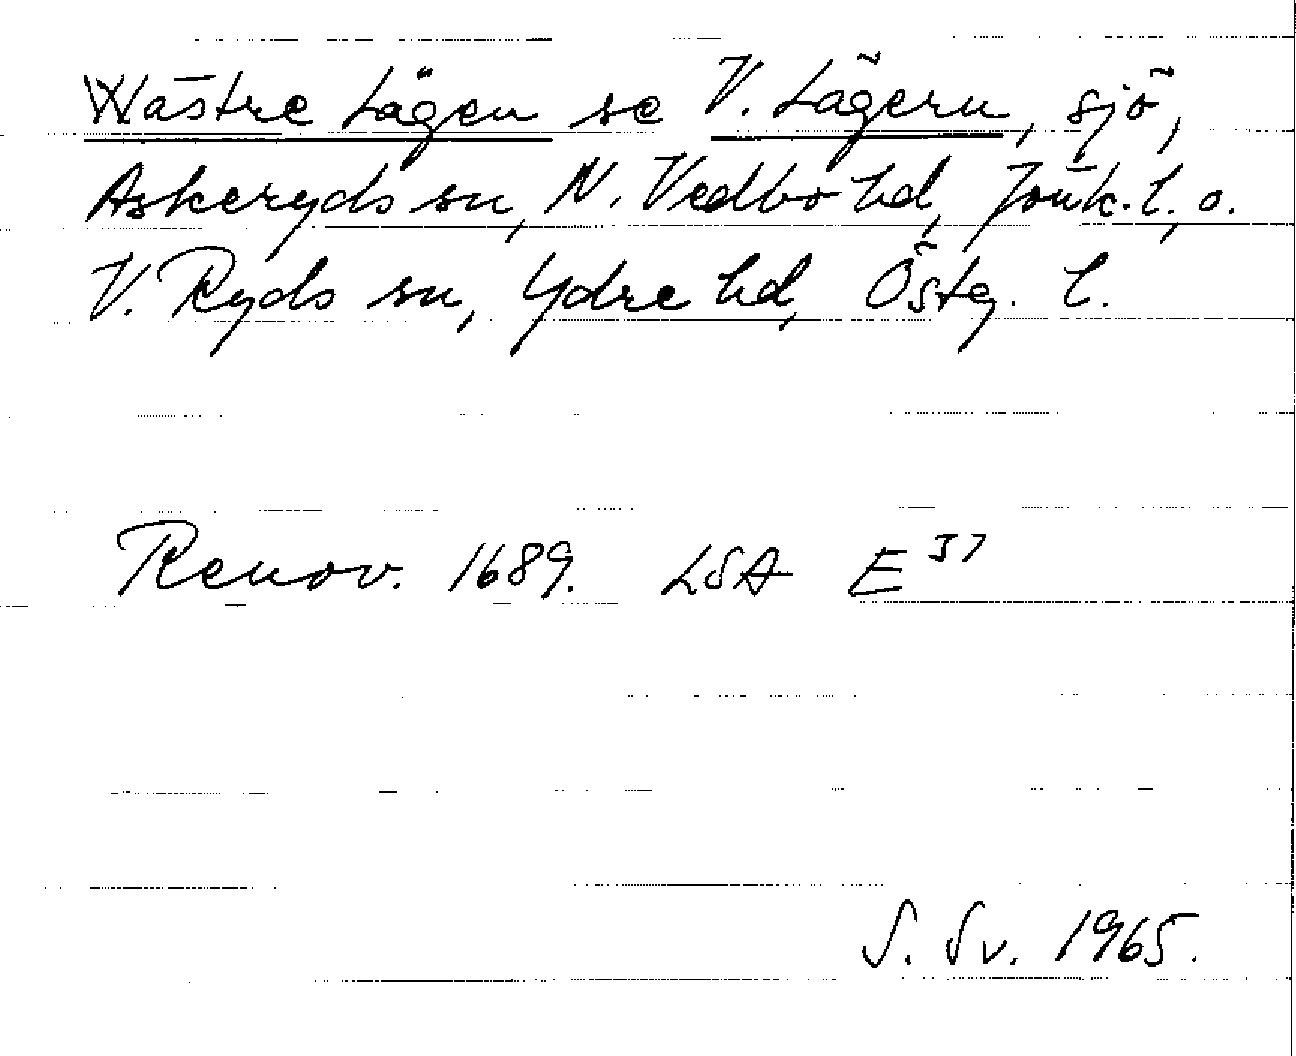 Wästre Lägen se V. Lägern, sjö,
Askeryds sn, N. Vedbo hd, Jönk. l., o.
V. Ryds sn, Ydre hd, Östg. l.
Renov. 1689. LSA E 37
S. Sv. 1965.